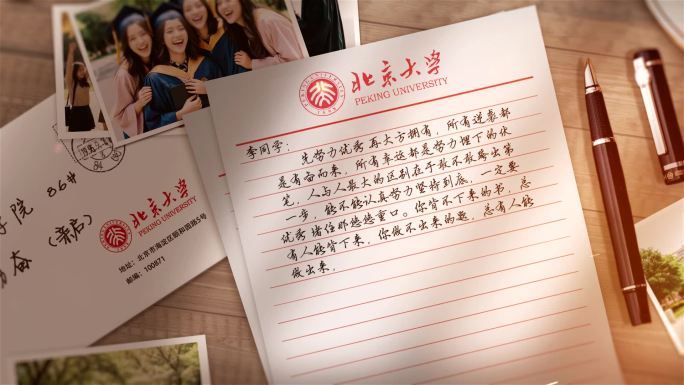 北京大学
PEKING UNIVERSITY
李同学:
先努力优秀再大方拥有,所有逆袭都
是有备而来,所有幸运都是努力埋下的伏
笔,人与人最大的区别在于敢不敢跨出第
一步,能不能认真努力坚持到底,一定要
优秀堵住那悠悠重口。你背不下来的书,总
有人能背下来,你做不出来的题,总有人能
做出来。
学院 86#
(亲启)
北京大学
PEKING UNIVERSITY
地址:北京市海淀区颐和园路5号
邮编:100871